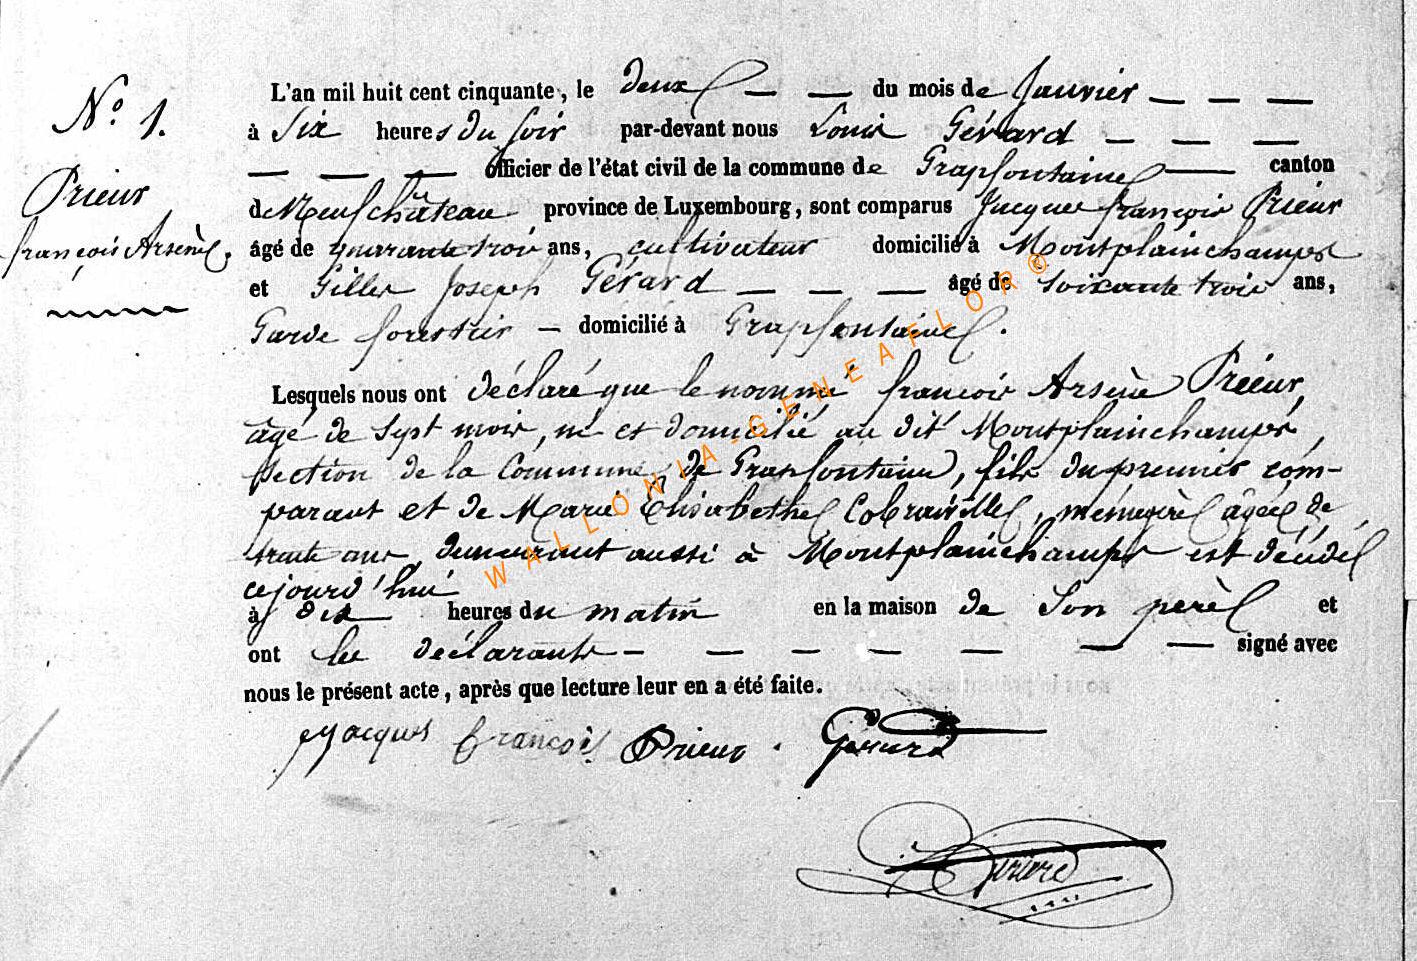 N.° 1.
Prieur
françois Arsène.
L'an mil huit cent cinquante, le deux du mois de Janvier
à Six heures du soir par-devant nous Louis Gérard
officier de l'état civil de la commune de Grapfontaine canton
de Neufchâteau province de Luxembourg, sont comparus Jacques françois Prieur
âgé de quarante trois ans, cultivateur domicilié à Montplainchamps
et Gilles Joseph Gérard âgé de soixante trois ans,
Garde forestier domicilié à Grapfontaine.
Lesquels nous ont déclaré que le nommé françois Arsène Prieur,
âgé de Sept mois, né et domicilié au dit Montplainchamps,
section de la Commune de Grapfontaine, fils du premier com-
parant et de Marie Elisabethe Colrainville, ménagère âgée de
trente ans, demeurant aussi à Montplainchamps est décédé
cejourd'hui
à dix heures du matin en la maison de son père et
ont les déclarants signé avec
nous le présent acte, après que lecture leur en a été faite.
Jacques françois Prieur. Gérard
Gérard
WALLONIA-GENEAFLOR©